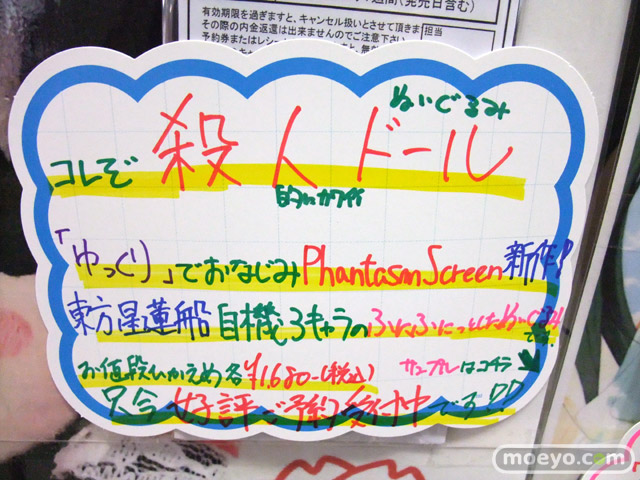 週間(発売日含む)
有効期限を過ぎますと、キャンセル扱いとさせて頂きま
その際の内金返還は出来ませんのでご注意下さい
担当
ぬいぐるみ
コレぞ 殺人ドール
的にカワイイ
「ゆっくり」でおなじみPhantasm Screen新作!
東方星蓮船 自機3キャラのふにふにっとしたぬいぐるみ
です。
お値段ひかえめ各¥1,680-(税込)
サンプルはコチラ
只今 好評ご予約受付中です!!
moeyo.com